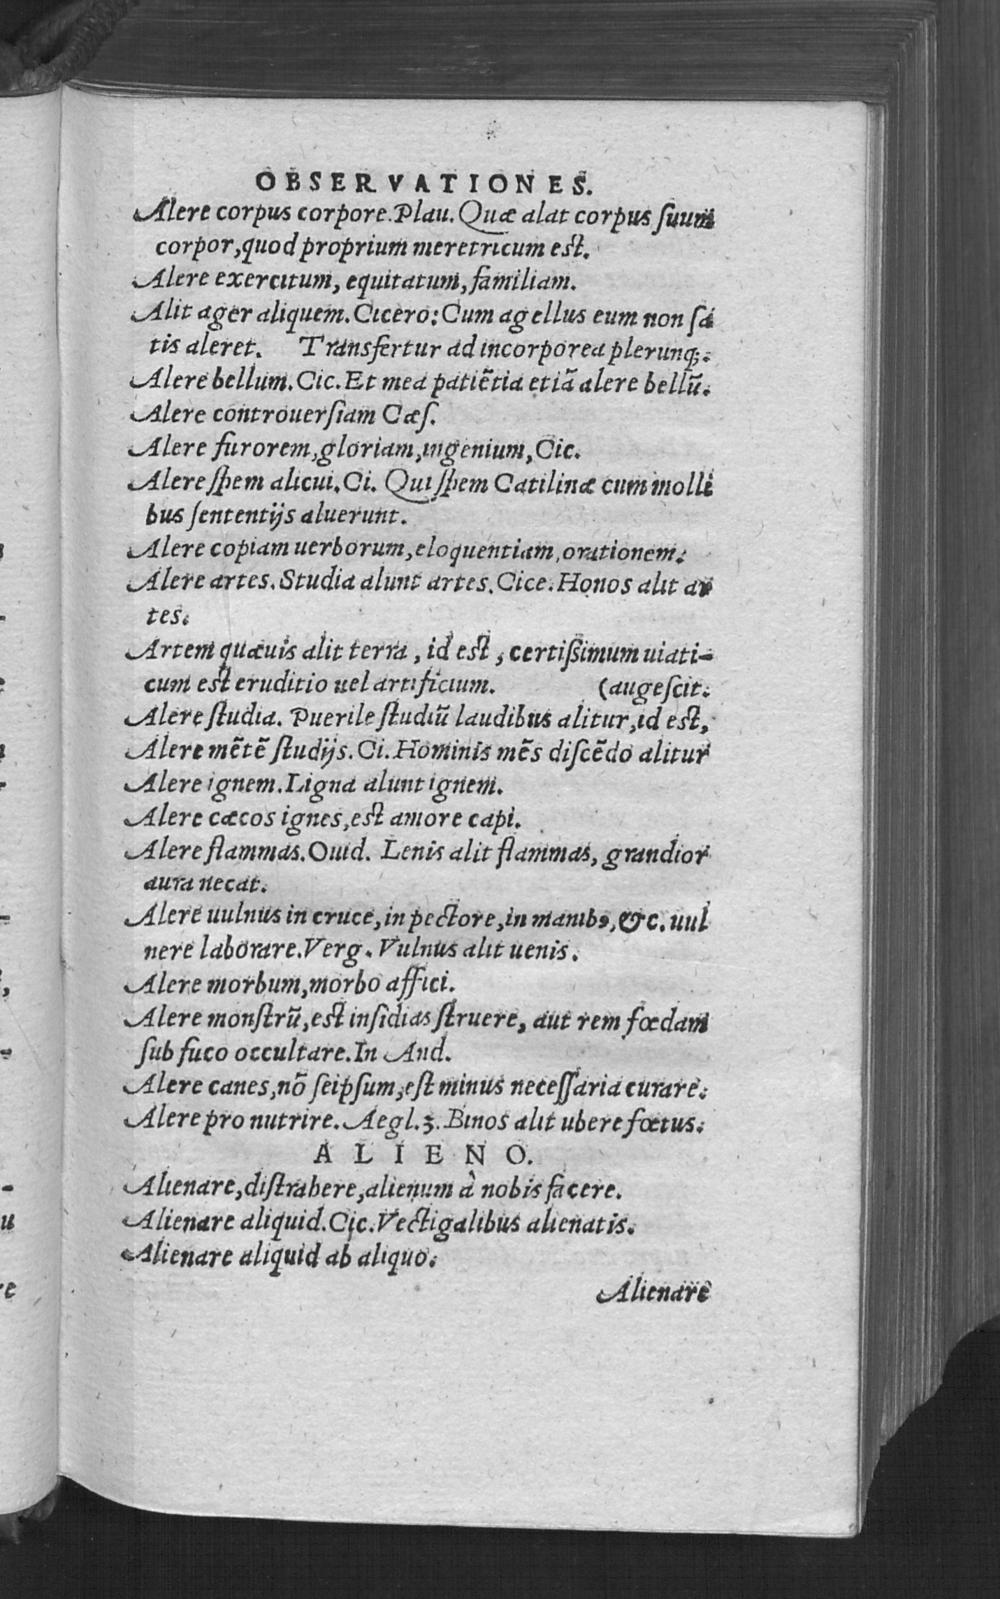 OBSERVATIONES.
Alere corpus corpore. Plau. Quæ alat corpus ſuum
corpor, quod proprium meretricum est.
Alere exercitum, equitatum, familiam.
Alit ager aliquem. Cicero: Cum agellus eum non ſa
tis aleret. Transfertur ad incorporea plerunq;.
Alere bellum. Cic. Et mea patiẽtia etiã alere bellũ.
Alere controuerſiam Cæſ.
Alere furorem, gloriam, ingenium, Cic.
Alere ſpem alicui. Ci. Qui ſpem Catilinæ cum molli
bus ſententijs aluerunt.
Alere copiam uerborum, eloquentiam, orationem.
Alere artes. Studia alunt artes. Cice. Honos alit ar
tes.
Artem quæuis alit terra, id est, certißimum uiati-
cum est eruditio uel artificium. (augeſcit.
Alere ſtudia. Puerile ſtudiũ laudibus alitur, id est,
Alere mẽtẽ ſtudijs. Ci. Hominis mẽs diſcẽdo alitur
Alere ignem. Ligna alunt ignem.
Alere cæcos ignes, est amore capi.
Alere flammas. Ouid. Lenis alit flammas, grandior
aura necat.
Alere uulnus in cruce, in pectore, in manib9, &c. uul
nere laborare. Verg. Vulnus alit uenis.
Alere morbum, morbo affici.
Alere monſtrũ, est inſidias ſtruere, aut rem fœdam
ſub fuco occultare. In And.
Alere canes, nõ ſeipſum, est minus neceſſaria curare.
Alere pro nutrire. Aegl. 3. Binos alit ubere fœtus.
ALIENO.
Alienare, diſtrahere, alienum à nobis facere.
Alienare aliquid. Cic. Vectigalibus alienatis.
Alienare aliquid ab aliquo.
Alienare